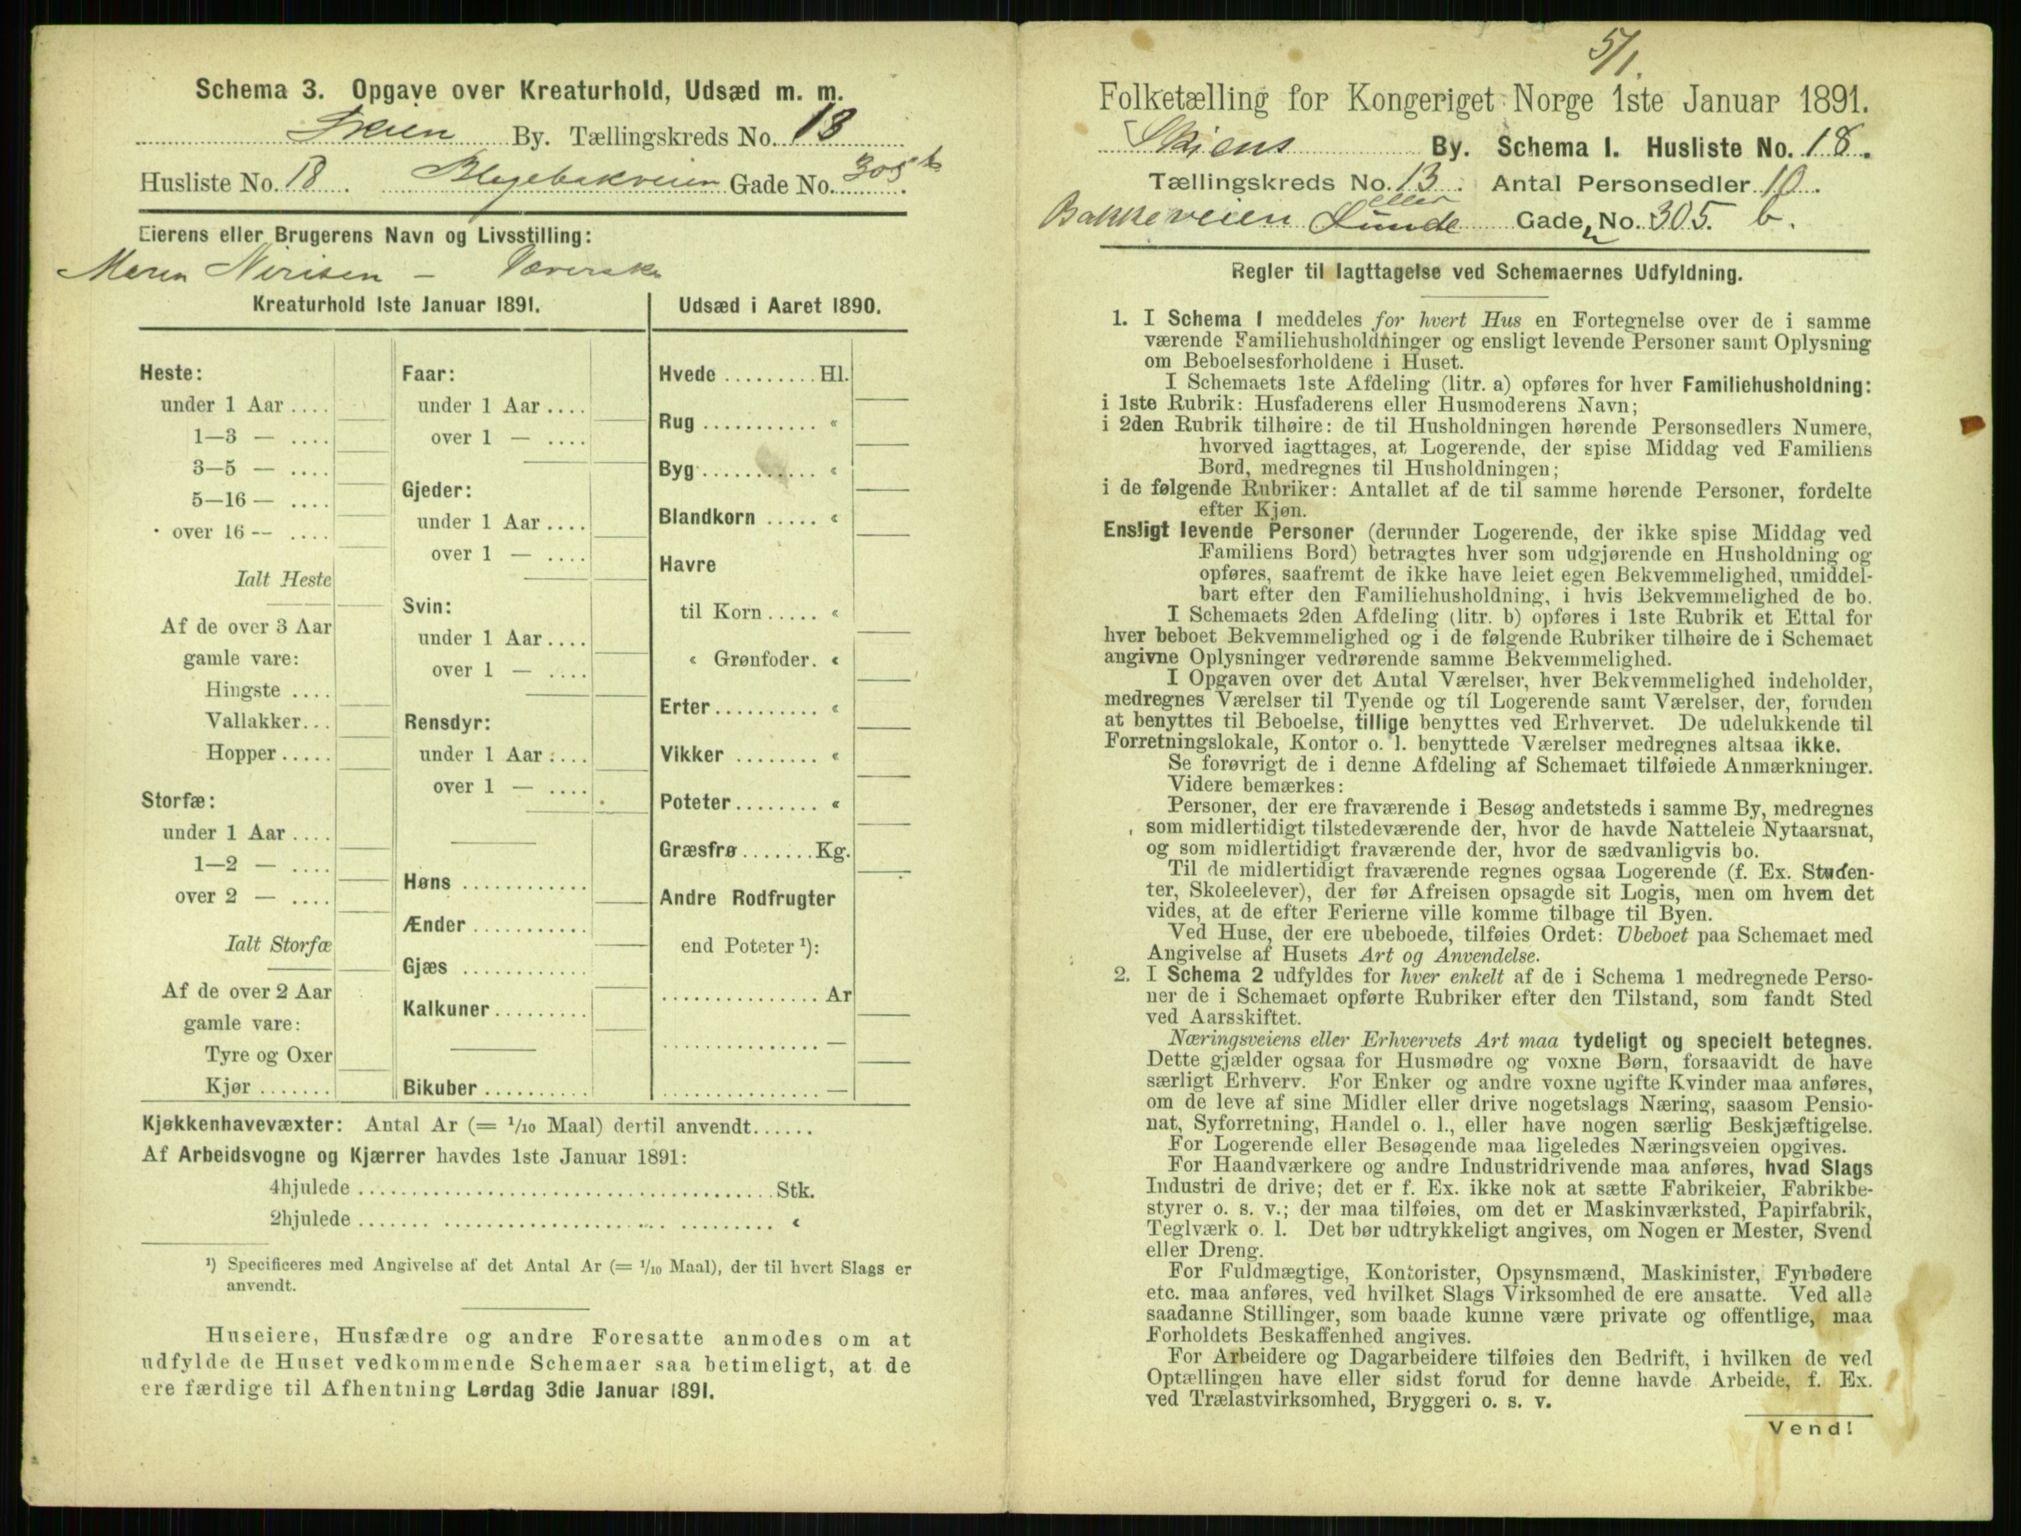 Schema 3. Opgave over Kreaturhold, Udsæd m. m.
Skien By. Tællingskreds No. 13
Husliste No. 18. Blegebakveien Gade No. 305 b.
Eierens eller Brugerens Navn og Livsstilling:
Maren Nirisen – Væverske
Kreaturhold 1ste Januar 1891.
Heste:
under 1 Aar ....
1—3 — ....
3—5 — ....
5—16 — ....
over 16 — ....
Ialt Heste
Af de over 3 Aar
gamle vare:
Hingste ....
Vallakker...
Hopper.....
Storfæ:
under 1 Aar ....
1—2 — ....
over 2 — ....
Ialt Storfæ
Af de over 2 Aar
gamle vare:
Tyre og Oxer
Kjør .......
Faar:
under 1 Aar ....
over 1 — ....
Gjeder:
under 1 Aar ....
over 1 — ....
Svin:
under 1 Aar ....
over 1 — ....
Rensdyr:
under 1 Aar ....
over 1 — ....
Høns ............
Ænder ...........
Gjæs ............
Kalkuner.........
Bikuber ..........
Udsæd i Aaret 1890.
Hvede ......... Hl.
Rug ........... «
Byg ........... «
Blandkorn ..... «
Havre
til Korn ..... «
« Grønfoder. «
Erter.......... «
Vikker ........ «
Poteter........ «
Græsfrø .......Kg.
Andre Rodfrugter
end Poteter ¹):
............... Ar
............... —
............... —
Kjøkkenhavevæxter: Antal Ar (= 1/10 Maal) dertil anvendt......
Af Arbeidsvogne og Kjærrer havdes 1ste Januar 1891:
4hjulede ....................................... Stk.
2hjulede ....................................... «
¹) Specificeres med Angivelse af det Antal Ar (= 1/10 Maal), der til hvert Slags er
anvendt.
Huseiere, Husfædre og andre Foresatte anmodes om at
udfylde de Huset vedkommende Schemaer saa betimeligt, at de
ere færdige til Afhentning Lørdag 3die Januar 1891.
5/1.
Folketælling for Kongeriget Norge 1ste Januar 1891.
Skiens By. Schema 1. Husliste No. 18.
Tællingskreds No. 13. Antal Personsedler 10.
eller
Bakkeveien Lunde Gade No. 305. b.
Regler til Iagttagelse ved Schemaernes Udfyldning.
1. I Schema 1 meddeles for hvert Hus en Fortegnelse over de i samme
værende Familiehusholdninger og ensligt levende Personer samt Oplysning
om Beboelsesforholdene i Huset.
I Schemaets 1ste Afdeling (litr. a) opføres for hver Familiehusholdning:
i 1ste Rubrik: Husfaderens eller Husmoderens Navn;
i 2den Rubrik tilhøire: de til Husholdningen hørende Personsedlers Numere,
hvorved iagttages, at Logerende, der spise Middag ved Familiens
Bord, medregnes til Husholdningen;
i de følgende Rubriker: Antallet af de til samme hørende Personer, fordelte
efter Kjøn.
Ensligt levende Personer (derunder Logerende, der ikke spise Middag ved
Familiens Bord) betragtes hver som udgjørende en Husholdning og
opføres, saafremt de ikke have leiet egen Bekvemmelighed, umiddel-
bart efter den Familiehusholdning, i hvis Bekvemmelighed de bo.
I Schemaets 2den Afdeling (litr. b) opføres i 1ste Rubrik et Ettal for
hver beboet Bekvemmelighed og i de følgende Rubriker tilhøire de i Schemaet
angivne Oplysninger vedrørende samme Bekvemmelighed.
I Opgaven over det Antal Værelser, hver Bekvemmelighed indeholder,
medregnes Værelser til Tyende og til Logerende samt Værelser, der, foruden
at benyttes til Beboelse, tillige benyttes ved Erhvervet. De udelukkende til
Forretningslokale, Kontor o. l. benyttede Værelser medregnes altsaa ikke.
Se forøvrigt de i denne Afdeling af Schemaet tilføiede Anmærkninger.
Videre bemærkes:
Personer, der ere fraværende i Besøg andetsteds i samme By, medregnes
som midlertidigt tilstedeværende der, hvor de havde Natteleie Nytaarsnat,
og som midlertidigt fraværende der, hvor de sædvanligvis bo.
Til de midlertidigt fraværende regnes ogsaa Logerende (f. Ex. Studen-
ter, Skoleelever), der før Afreisen opsagde sit Logis, men om hvem det
vides, at de efter Ferierne ville komme tilbage til Byen.
Ved Huse, der ere ubeboede, tilføies Ordet: Ubeboet paa Schemaet med
Angivelse af Husets Art og Anvendelse.
2. I Schema 2 udfyldes for hver enkelt af de i Schema 1 medregnede Perso-
ner de i Schemaet opførte Rubriker efter den Tilstand, som fandt Sted
ved Aarsskiftet.
Næringsveiens eller Erhvervets Art maa tydeligt og specielt betegnes.
Dette gjælder ogsaa for Husmødre og voxne Børn, forsaavidt de have
særligt Erhverv. For Enker og andre voxne ugifte Kvinder maa anføres,
om de leve af sine Midler eller drive nogetslags Næring, saasom Pensio-
nat, Syforretning, Handel o. l., eller have nogen særlig Beskjæftigelse.
For Logerende eller Besøgende maa ligeledes Næringsveien opgives.
For Haandværkere og andre Industridrivende maa anføres, hvad Slags
Industri de drive; det er f. Ex. ikke nok at sætte Fabrikeier, Fabrikbe-
styrer o. s. v.; der maa tilføies, om det er Maskinværksted, Papirfabrik,
Teglværk o. l. Det bør udtrykkeligt angives, om Nogen er Mester, Svend
eller Dreng.
For Fuldmægtige, Kontorister, Opsynsmænd, Maskinister, Fyrbødere
etc. maa anføres, ved hvilket Slags Virksomhed de ere ansatte. Ved alle
saadanne Stillinger, som baade kunne være private og offentlige, maa
Forholdets Beskaffenhed angives.
For Arbeidere og Dagarbeidere tilføies den Bedrift, i hvilken de ved
Optællingen have eller sidst forud for denne havde Arbeide, f. Ex.
ved Trælastvirksomhed, Bryggeri o. s. v.
Vend!